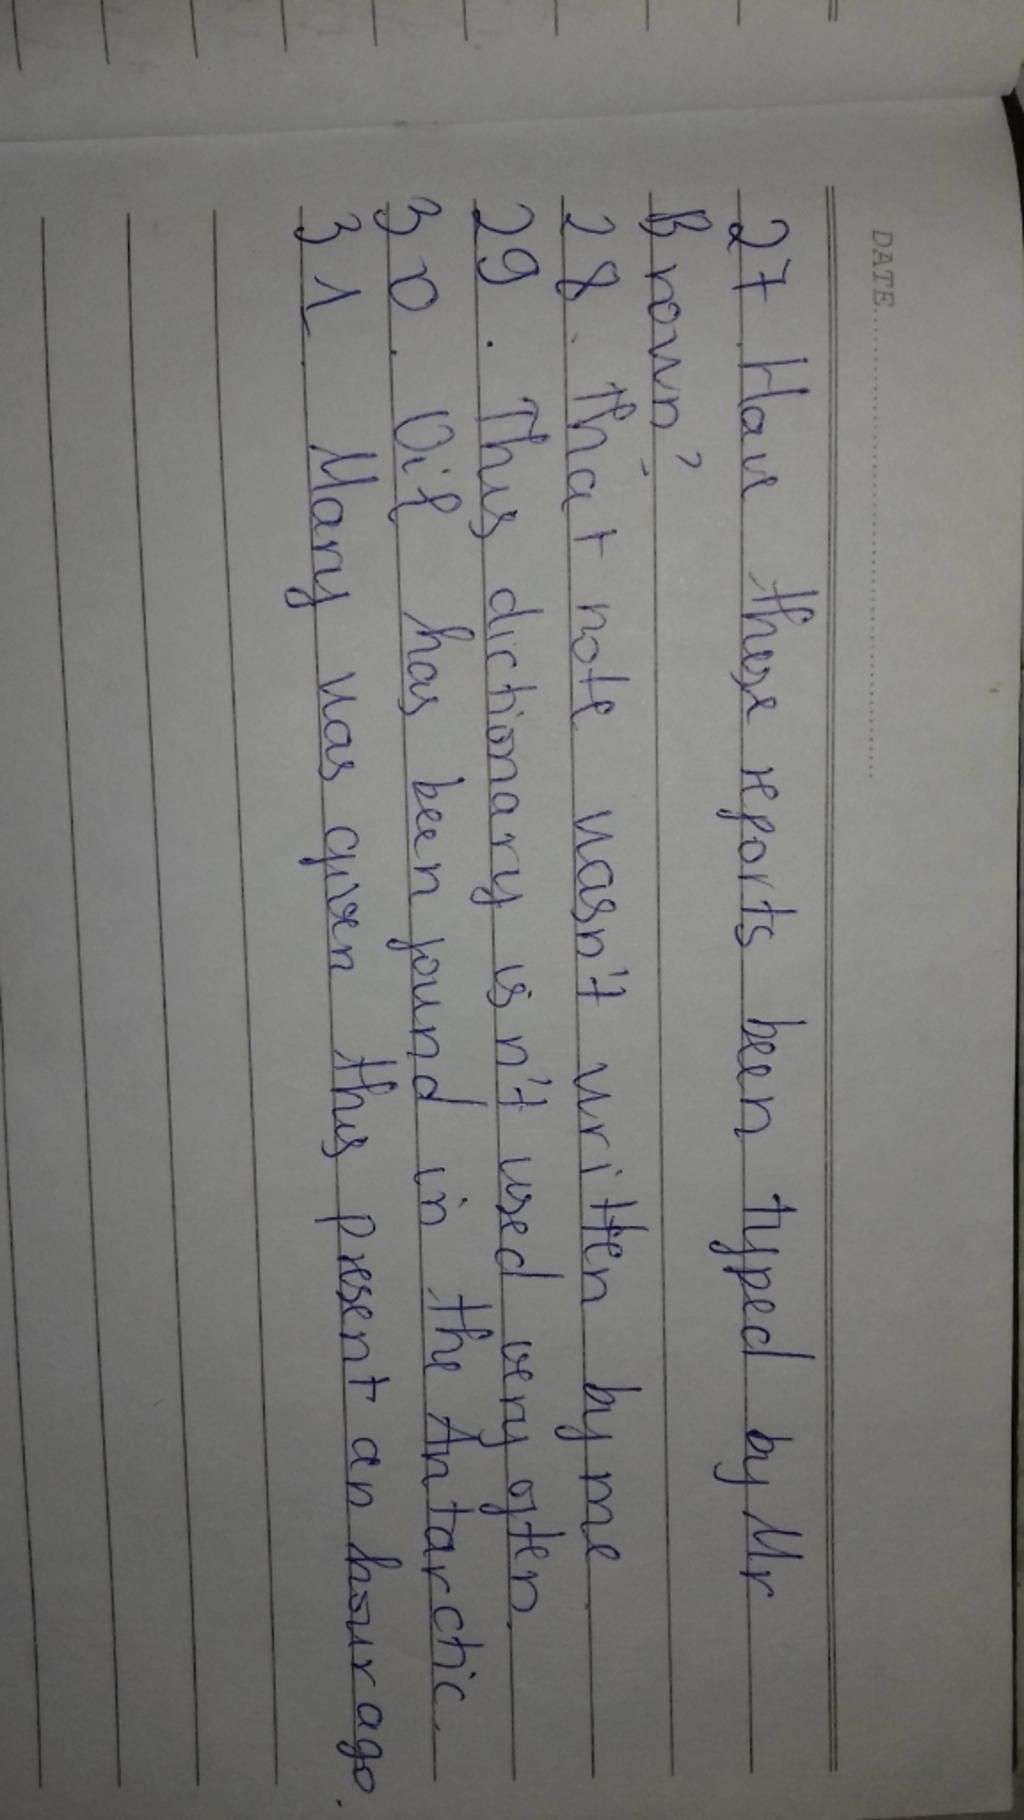 DATE
27 Have these reports been typed by Mr
Brown?
28. That note wasn't written by me.
29. This dictionary isn't used very often.
30. Oil has been found in the Antarctic.
31. Mary was given this present an hour ago.